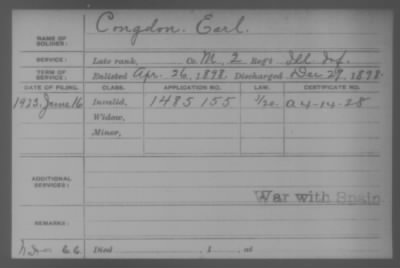 NAME OF SOLDIER: Congdon, Earl.
SERVICE: Late rank, Co. M, 2 Regt Ill. Inf.
TERM OF SERVICE: Enlisted Apr. 26, 1898. Discharged Dec 29, 1898.
DATE OF FILING. CLASS. APPLICATION NO. LAW. CERTIFICATE NO.
1923, June 16 Invalid, 1485155 a4-14-28
Widow,
Minor,
ADDITIONAL SERVICES:
War with Spain
REMARKS:
Died , 1 , at